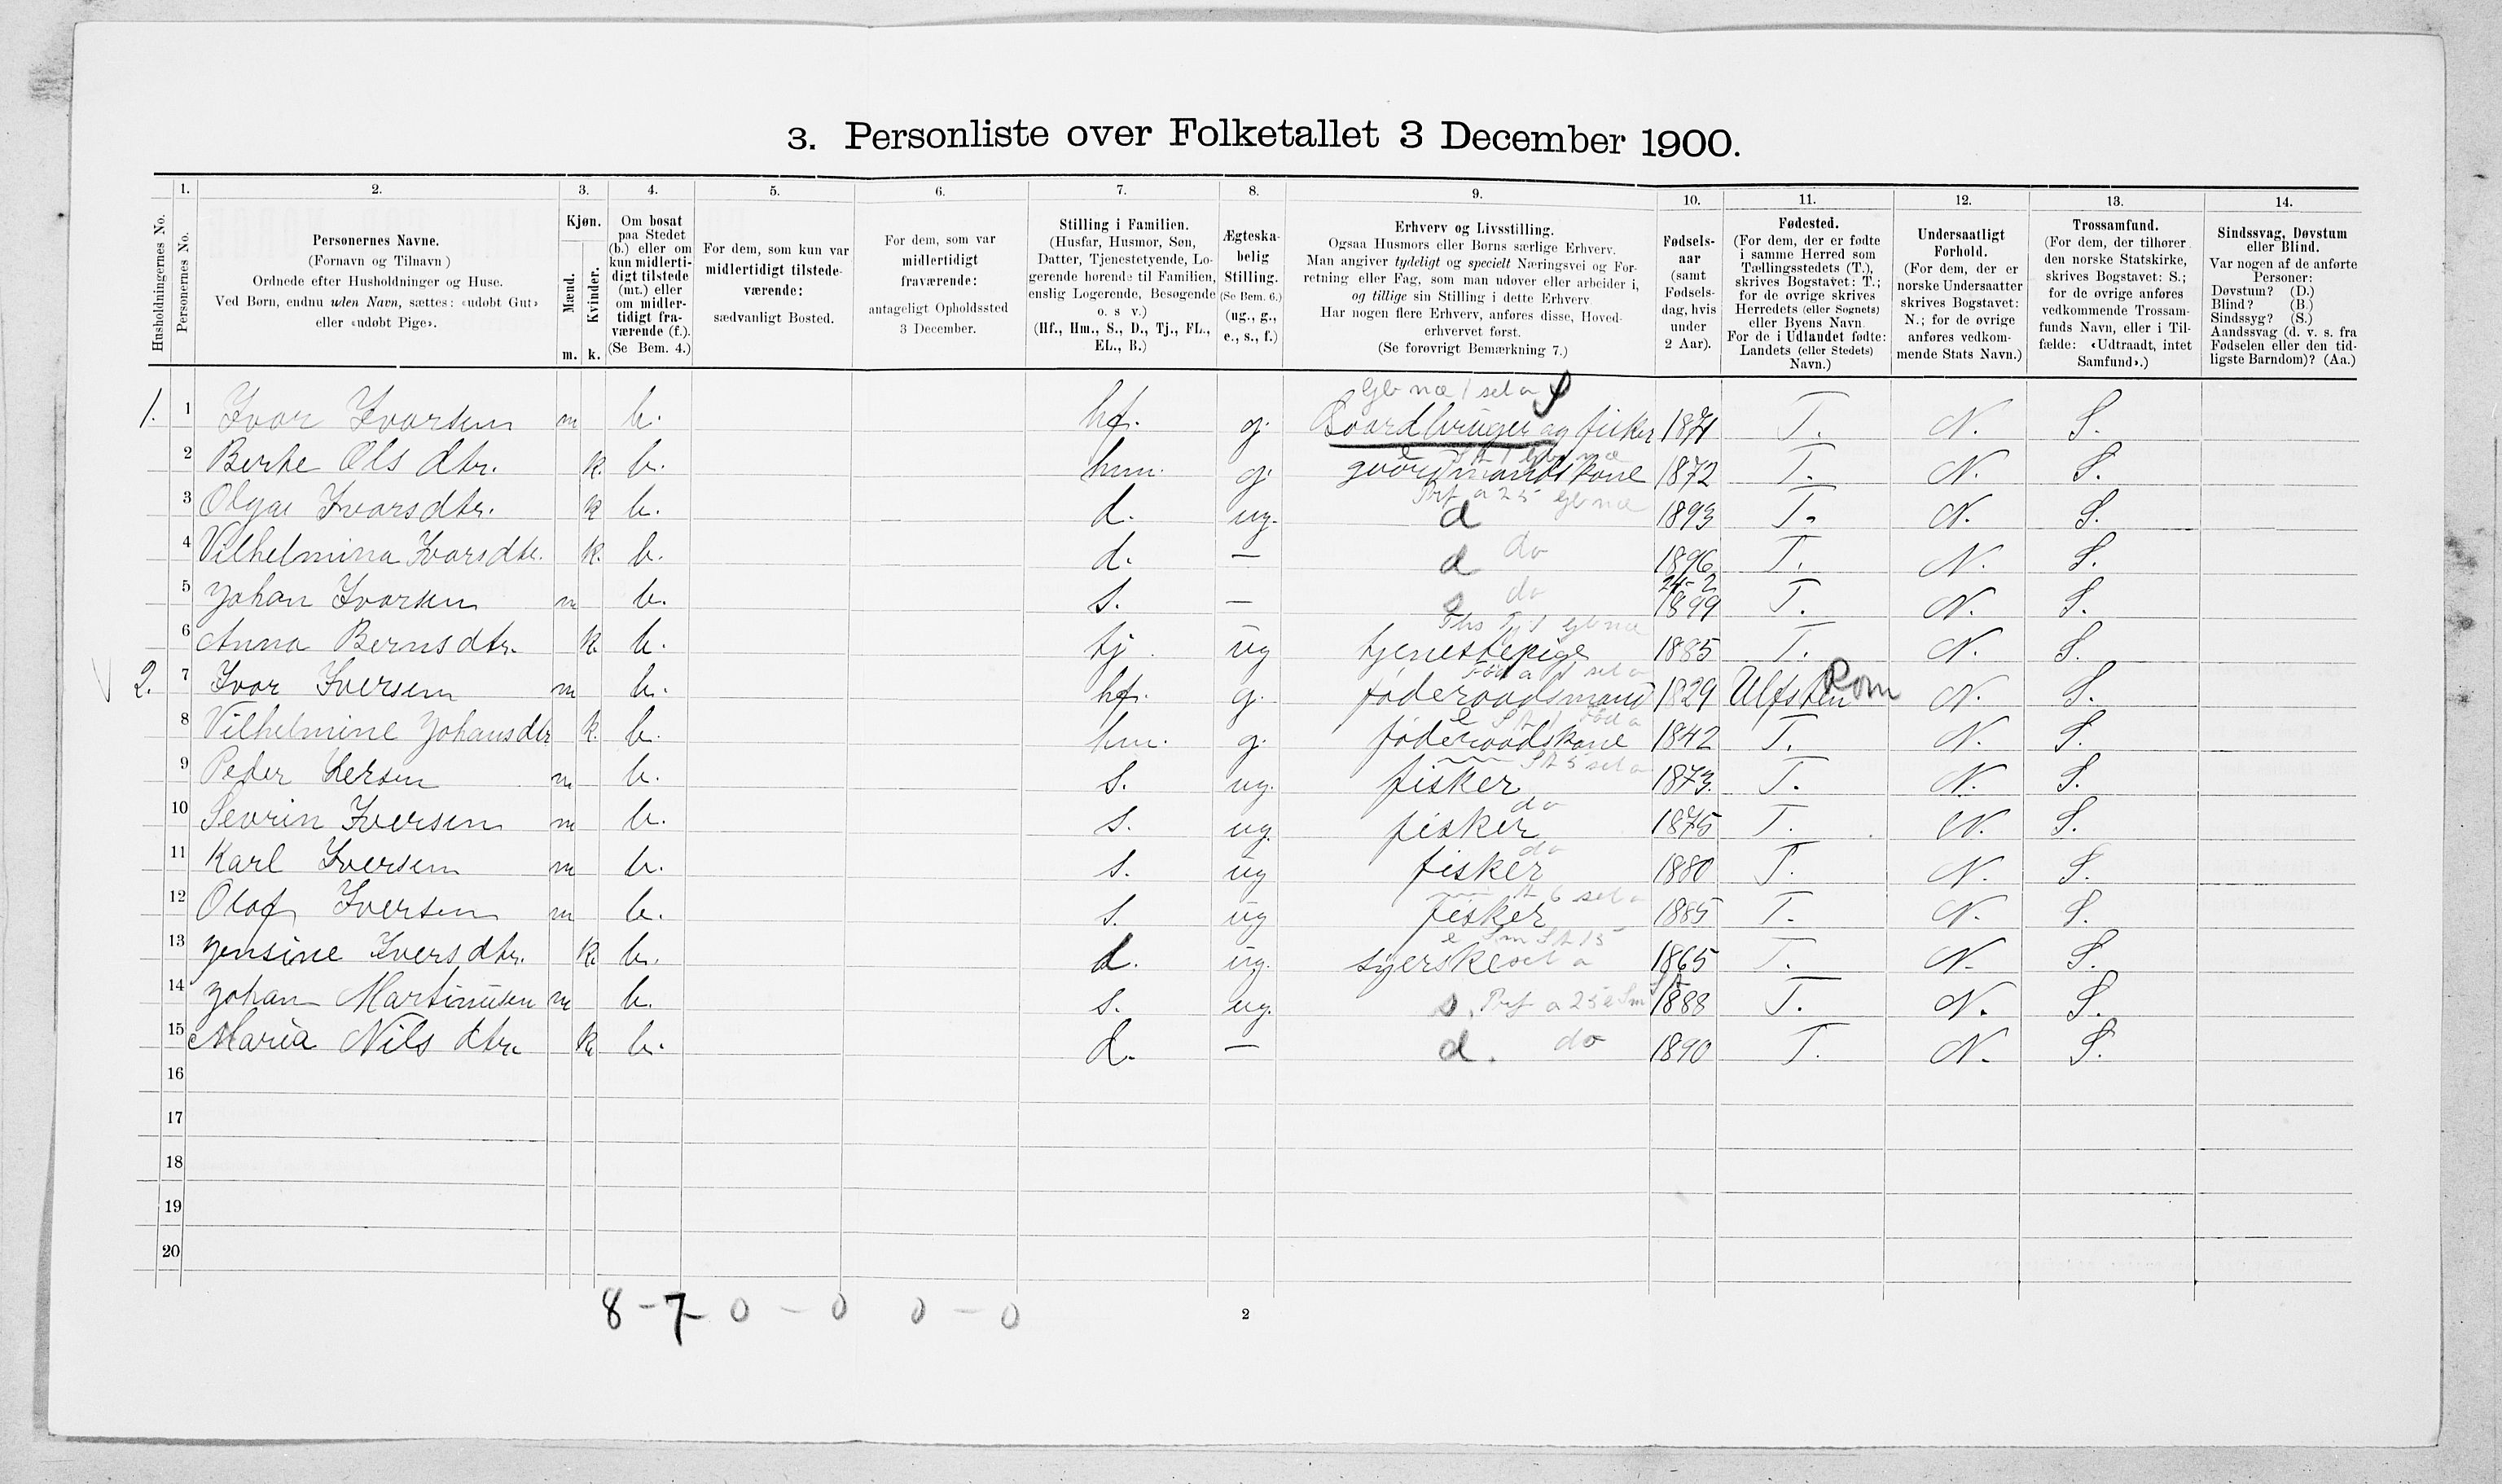 3. Personliste over Folketallet 3 December 1900.
1. 2. 3. 4. 5. 6. 7. 8. 9. 10. 11. 12. 13. 14.
Husholdningernes No.
Personernes No.
Personernes Navne.
(Fornavn og Tilnavn)
Ordnede efter Husholdninger og Huse.
Ved Børn, endnu uden Navn, sættes: «udøbt Gut»
eller «udøbt Pige».
Kjøn.
Mænd. m.
Kvinder. k.
Om bosat
paa Stedet
(b.) eller om
kun midlerti-
digt tilstede
(mt.) eller
om midler-
tidigt fra-
værende (f.).
(Se Bem. 4.)
For dem, som kun var
midlertidigt tilstede-
værende:
sædvanligt Bosted.
For dem, som var
midlertidigt
fraværende:
antageligt Opholdssted
3 December.
Stilling i Familien.
(Husfar, Husmor, Søn,
Datter, Tjenestetyende, Lo-
gerende hørende til Familien,
enslig Logerende, Besøgende
o. s v.)
(Hf., Hm., S., D., Tj., FL.,
EL., B.)
Ægteska-
belig
Stilling.
(Se Bem. 6.)
(ug., g.,
e., s., f.)
Erhverv og Livsstilling.
Ogsaa Husmors eller Børns særlige Erhverv.
Man angiver tydeligt og specielt Næringsvei og For-
retning eller Fag, som man udøver eller arbeider i,
og tillige sin Stilling i dette Erhverv
Har nogen flere Erhverv, anføres disse, Hoved-
erhvervet først.
(Se forøvrigt Bemærkning 7.)
Fødsels-
aar
(samt
Fødsels-
dag, hvis
under
2 Aar).
Fødested.
(For dem, der er fødte
i samme Herred som
Tællingsstedets (T.),
skrives Bogstavet: T.;
for de øvrige skrives
Herredets (eller Sognets)
eller Byens Navn.
For de i Udlandet fødte:
Landets (eller Stedets)
Navn.)
Undersaatligt
Forhold.
(For dem, der er
norske Undersaatter
skrives Bogstavet:
N.; for de øvrige
anføres vedkom-
mende Stats Navn.)
Trossamfund.
(For dem, der tilhører
den norske Statskirke,
skrives Bogstavet: S.;
for de øvrige anføres
vedkommende Trossam-
funds Navn, eller i Til-
fælde: «Udtraadt, intet
Samfund».)
Sindssvag, Døvstum
eller Blind.
Var nogen af de anførte
Personer:
Døvstum? (D.)
Blind? (B.)
Sindssyg? (S.)
Aandssvag (d. v. s. fra
Fødselen eller den tid-
ligste Barndom)? (Aa.)
1. 1 Ivar Ivarsen m b. hf. g. Gaardbruger og fisker 1871 T. N. S.
2 Berte Ols dtr. k. b. hm. g. gaardmandskone 1872 T. N. S.
3 Olga Ivarsdtr. k b. d. ug. d 1893 T. N. S.
4 Vilhelmina Ivarsdtr. k. b. d. — d do 1896 T. N. S.
5 Johan Ivarsen m b. s. — s do 24-2 1899 T. N. S.
6 Anna Bernsdtr. k. b. tj. ug tjenestepige 1885 T. N. S.
2. 7 Ivar Iversen m b. hf. g. føderaadsmand 1829 Ulfsten Rom N. S.
8 Vilhelmine Johansdtr k. b. hm. g. føderaadskone 1842 T. N. S.
9 Peder Iversen m b. s. ug. fisker 1873. T. N. S.
10 Sevrin Iversen m b. s. ug. fisker do 1875 T. N. S.
11 Karl Iversen m b. s. ug fisker do 1880 T. N. S.
12 Olaf Iversen m b. s. ug fisker 1885 T. N. S.
13 Jensine Iversdtr. k. b. d. ug. syerske 1865 T. N. S.
14 Johan Martinusen m b. s. ug. s. 1888 T. N. S.
15 Maria Nils dtr. k. b. d. — d. do 1890 T. N. S.
16
17
18
19
20
8 - 7 0 - 0 0 - 0
2